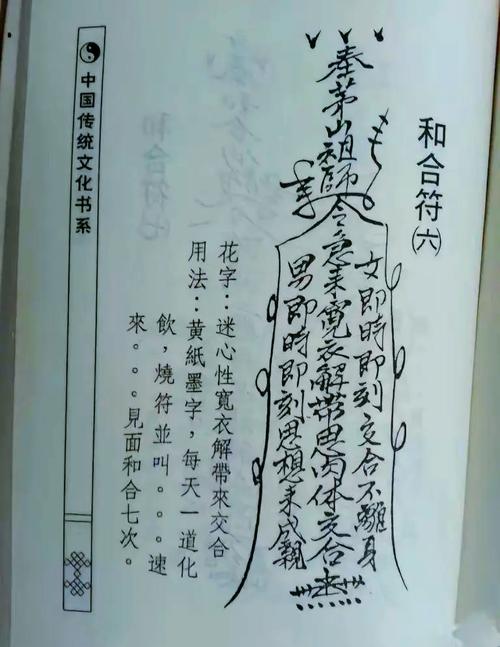 和合符(六)
奉茅山祖師令急来寬衣解帶思肉体交合
女即時即刻交合不離身
男即時即刻思想来成親
花字：迷心性寬衣解帶來交合
用法：黄紙墨字，每天一道化
飲，燒符並叫。。。速
來。。。見面和合七次。
中国传统文化书系